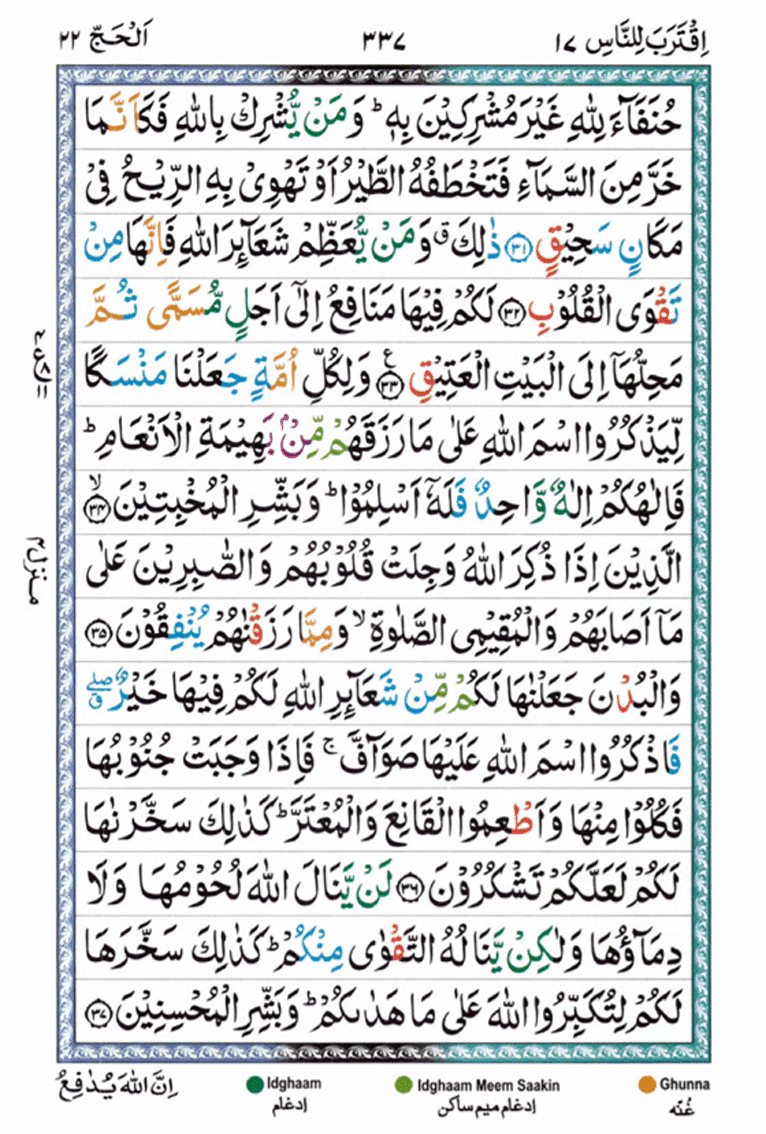 اِقْتَرَبَ لِلنَّاسِ ١٧ ٣٣٧ اَلْحَجّ ٢٢
حُنَفَآءَ لِلّٰهِ غَيْرَ مُشْرِكِيْنَ بِهٖ ؕ وَمَنْ يُّشْرِكْ بِاللّٰهِ فَكَاَنَّمَا
خَرَّ مِنَ السَّمَآءِ فَتَخْطَفُهُ الطَّيْرُ اَوْ تَهْوِىْ بِهِ الرِّيْحُ فِىْ
مَكَانٍ سَحِيْقٍ ﴿٣١﴾ ذٰلِكَ ۗ وَمَنْ يُّعَظِّمْ شَعَآئِرَ اللّٰهِ فَاِنَّهَا مِنْ
تَقْوَى الْقُلُوْبِ ﴿٣٢﴾ لَكُمْ فِيْهَا مَنَافِعُ اِلٰٓى اَجَلٍ مُّسَمًّى ثُمَّ
مَحِلُّهَاۤ اِلَى الْبَيْتِ الْعَتِيْقِ ﴿٣٣﴾ ع وَلِكُلِّ اُمَّةٍ جَعَلْنَا مَنْسَكًا
لِّيَذْكُرُوا اسْمَ اللّٰهِ عَلٰى مَا رَزَقَهُمْ مِّنْۢ بَهِيْمَةِ الْاَنْعَامِ ؕ
فَاِلٰهُكُمْ اِلٰهٌ وَّاحِدٌ فَلَهٗۤ اَسْلِمُوْا ؕ وَبَشِّرِ الْمُخْبِتِيْنَ ۙ ﴿٣٤﴾
الَّذِيْنَ اِذَا ذُكِرَ اللّٰهُ وَجِلَتْ قُلُوْبُهُمْ وَالصّٰبِرِيْنَ عَلٰى
مَاۤ اَصَابَهُمْ وَالْمُقِيْمِى الصَّلٰوةِ ۙ وَمِمَّا رَزَقْنٰهُمْ يُنْفِقُوْنَ ﴿٣٥﴾
وَالْبُدْنَ جَعَلْنٰهَا لَكُمْ مِّنْ شَعَآئِرِ اللّٰهِ لَكُمْ فِيْهَا خَيْرٌ ۖ ق
فَاذْكُرُوا اسْمَ اللّٰهِ عَلَيْهَا صَوَآفَّ ۚ فَاِذَا وَجَبَتْ جُنُوْبُهَا
فَكُلُوْا مِنْهَا وَاَطْعِمُوا الْقَانِعَ وَالْمُعْتَرَّ ؕ كَذٰلِكَ سَخَّرْنٰهَا
لَكُمْ لَعَلَّكُمْ تَشْكُرُوْنَ ﴿٣٦﴾ لَنْ يَّنَالَ اللّٰهَ لُحُوْمُهَا وَلَا
دِمَآؤُهَا وَلٰكِنْ يَّنَالُهُ التَّقْوٰى مِنْكُمْ ؕ كَذٰلِكَ سَخَّرَهَا
لَكُمْ لِتُكَبِّرُوا اللّٰهَ عَلٰى مَا هَدٰٮكُمْ ؕ وَبَشِّرِ الْمُحْسِنِيْنَ ﴿٣٧﴾
منزل ٤
اِنَّ اللّٰهَ يُدٰفِعُ
Idghaam Idghaam Meem Saakin Ghunna
ادغام ادغام میم ساکن غنّه